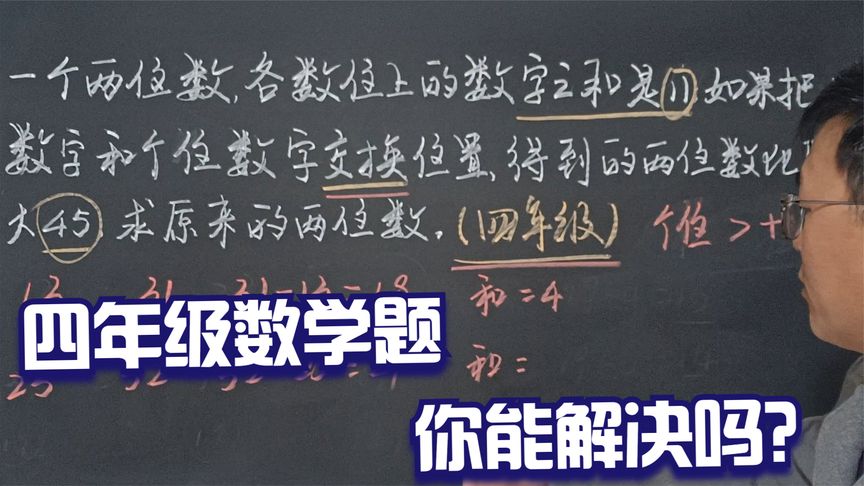 一个两位数,各数位上的数字之和是11如果把
数字和个位数字交换位置,得到的两位数比
大45,求原来的两位数。(四年级) 个位>十
13 31 31-13=18 和=4
和=
四年级数学题
你能解决吗?